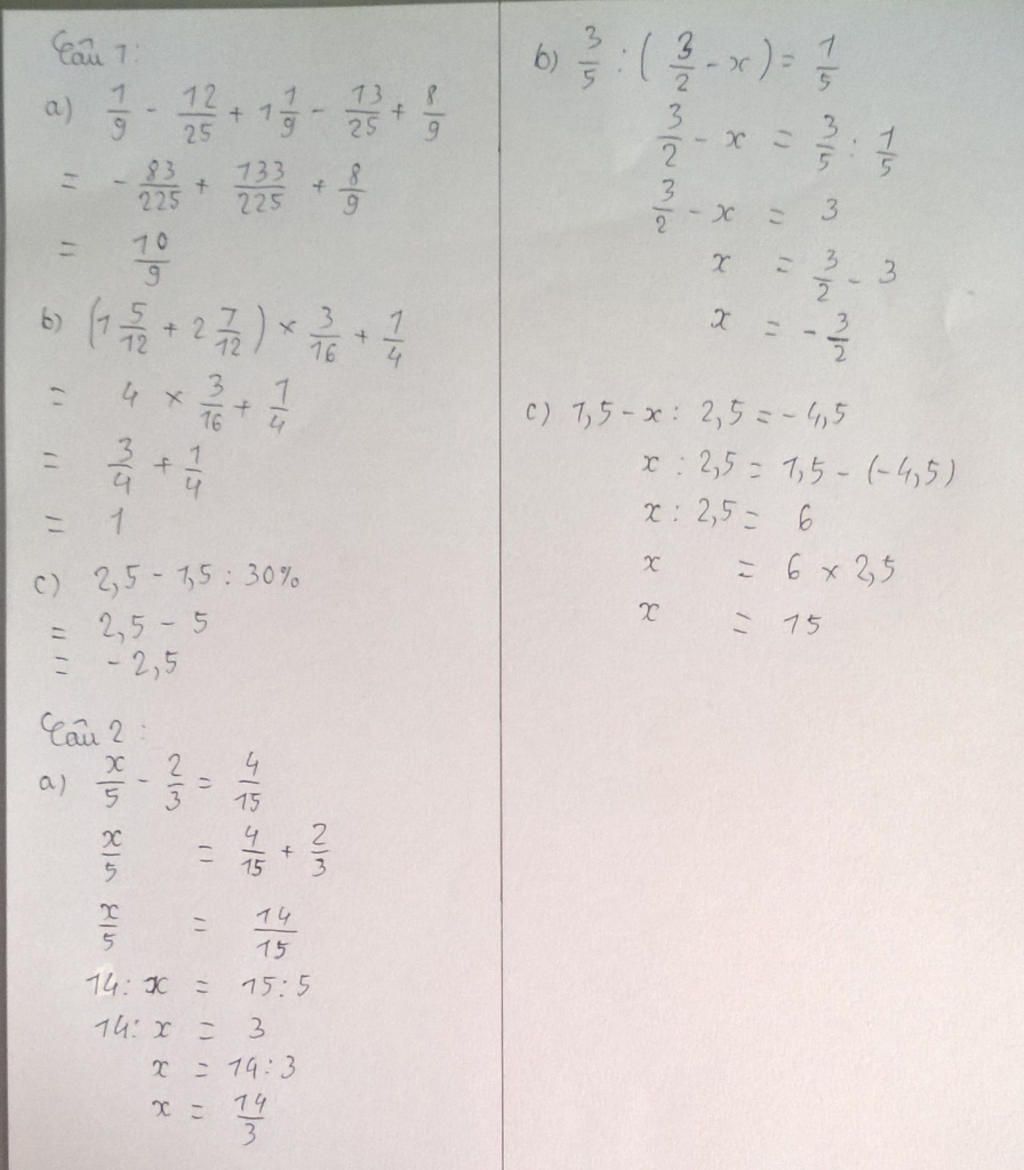 Câu 1:
a) 1/9 - 12/25 + 1 1/9 - 13/25 + 8/9
= - 83/225 + 133/225 + 8/9
= 10/9
b) (1 5/12 + 2 7/12) × 3/16 + 1/4
= 4 × 3/16 + 1/4
= 3/4 + 1/4
= 1
c) 2,5 - 1,5 : 30%
= 2,5 - 5
= - 2,5
Câu 2:
a) x/5 - 2/3 = 4/15
x/5 = 4/15 + 2/3
x/5 = 14/15
14 : x = 15 : 5
14 : x = 3
x = 14 : 3
x = 14/3
b) 3/5 : (3/2 - x) = 1/5
3/2 - x = 3/5 : 1/5
3/2 - x = 3
x = 3/2 - 3
x = - 3/2
c) 1,5 - x : 2,5 = - 4,5
x : 2,5 = 1,5 - (-4,5)
x : 2,5 = 6
x = 6 × 2,5
x = 15